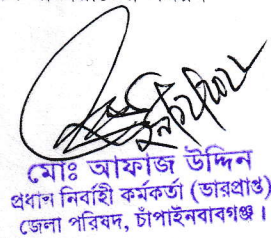 মোঃ আফাজ উদ্দিন
প্রধান নির্বাহী কর্মকর্তা (ভারপ্রাপ্ত)
জেলা পরিষদ, চাঁপাইনবাবগঞ্জ।